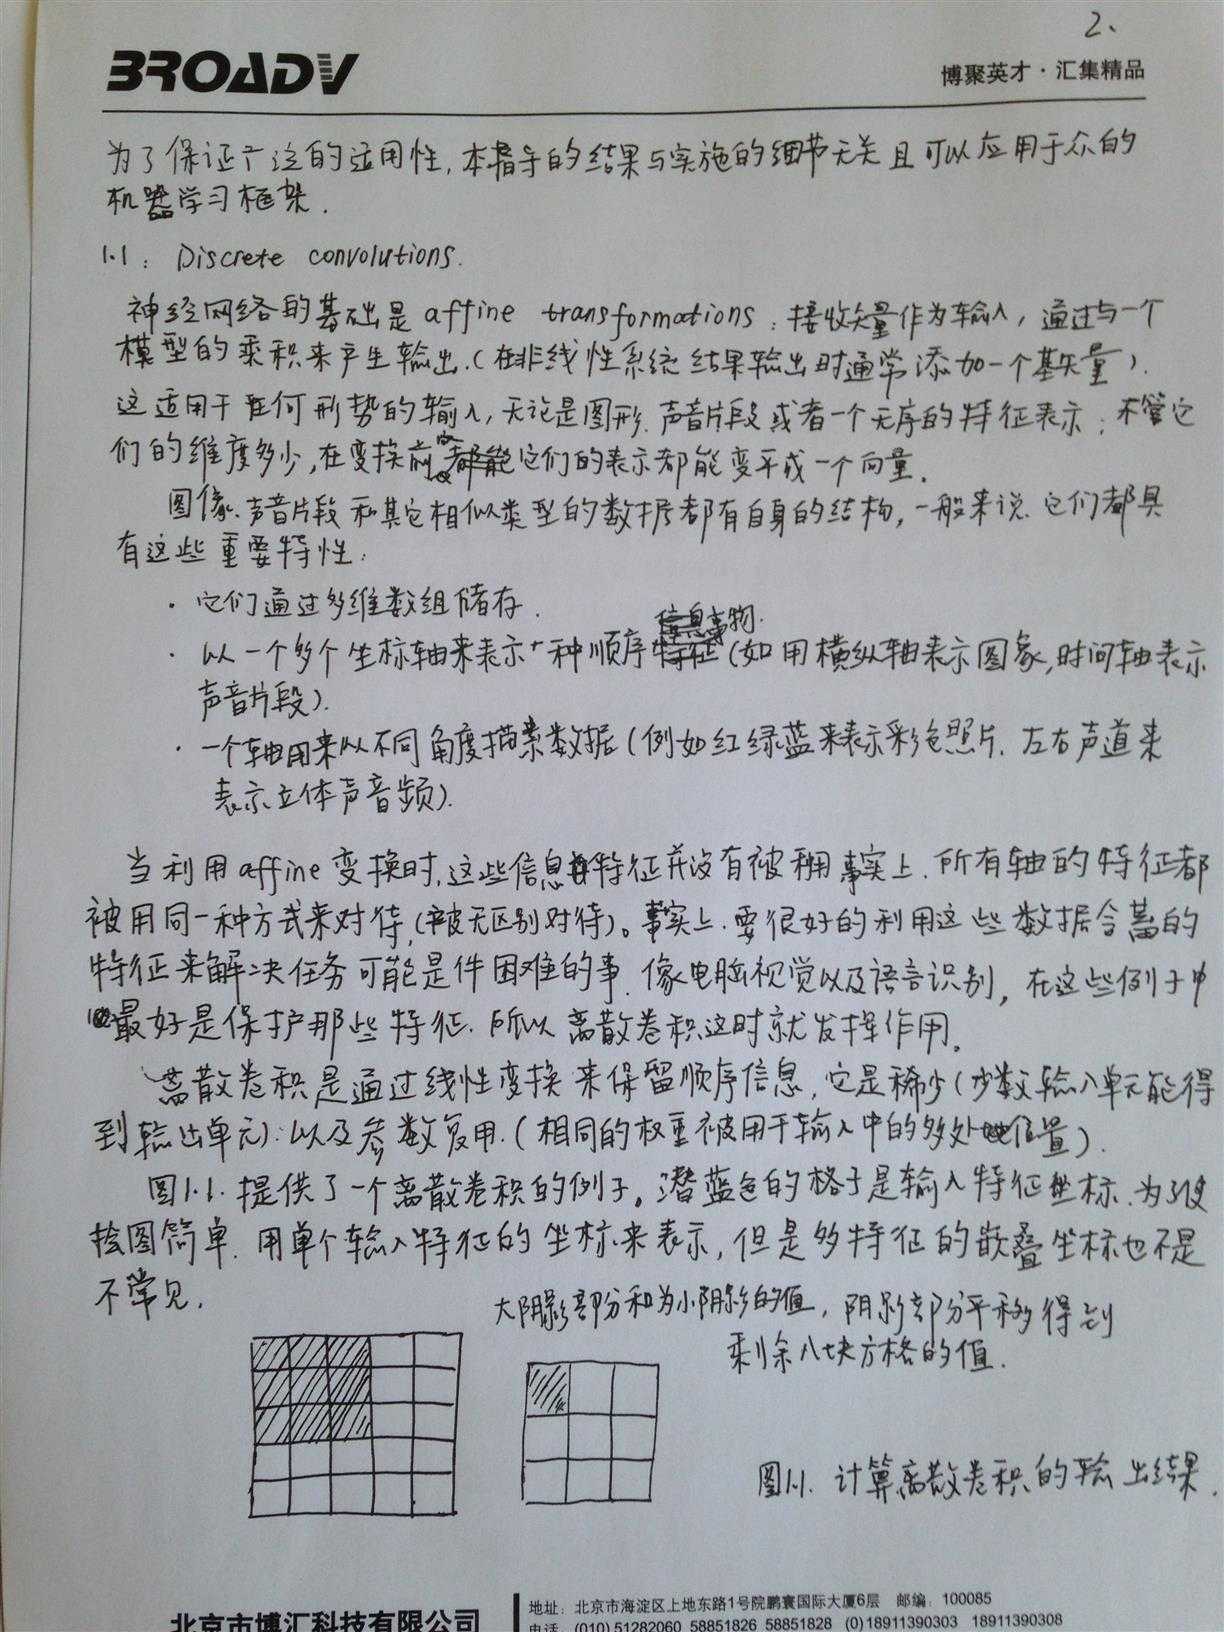 2、
BROADV
博聚英才·汇集精品
为了保证广泛的适用性,本指导的结果与实施的细节无关且可以应用于众的
机器学习框架.
1.1: Discrete convolutions.
神经网络的基础是affine transformations:接收矢量作为输入,通过与一个
模型的乘积来产生输出.(在非线性系统结果输出时通常添加一个基矢量).
这适用于任何形势的输入,无论是图形.声音片段或者一个无序的特征表示:不管它
们的维度多少,在变换前它们的表示都能变平成一个向量.
图像、声音片段和其它相似类型的数据都有自身的结构,一般来说.它们都具
有这些重要特性:
· 它们通过多维数组储存.
信息事物.
· 以一个多个坐标轴来表示一种顺序(如用横纵轴表示图象,时间轴表示
声音片段).
· 一个轴用来从不同角度描素数据(例如红绿蓝来表示彩色照片.左右声道来
表示立体声音频).
当利用affine变换时,这些信息特征并没有被利用事实上.所有轴的特征都
被用同一种方式来对待,(被无区别对待)。事实上.要很好的利用这些数据含蓄的
特征来解决任务可能是件困难的事.像电脑视觉以及语言识别,在这些例子中
最好是保护那些特征.所以离散卷积这时就发挥作用.
离散卷积是通过线性变换来保留顺序信息,它是稀少(少数输入单元能得
到输出单元):以及参数复用.(相同的权重被用于输入中的多处位置).
图1.1.提供了一个离散卷积的例子。潜蓝色的格子是输入特征坐标.为了使
绘图简单.用单个输入特征的坐标来表示,但是多特征的嵌叠坐标也不是
不常见.
大阴影部分和为小阴影的值,阴影部分平移得到
剩余八块方格的值.
图1.1.计算离散卷积的输出结果.
北京市博汇科技有限公司
地址:北京市海淀区上地东路1号院鹏寰国际大厦6层 邮编:100085
电话:(010) 51282060 58851826 58851828 (0)18911390303 18911390308